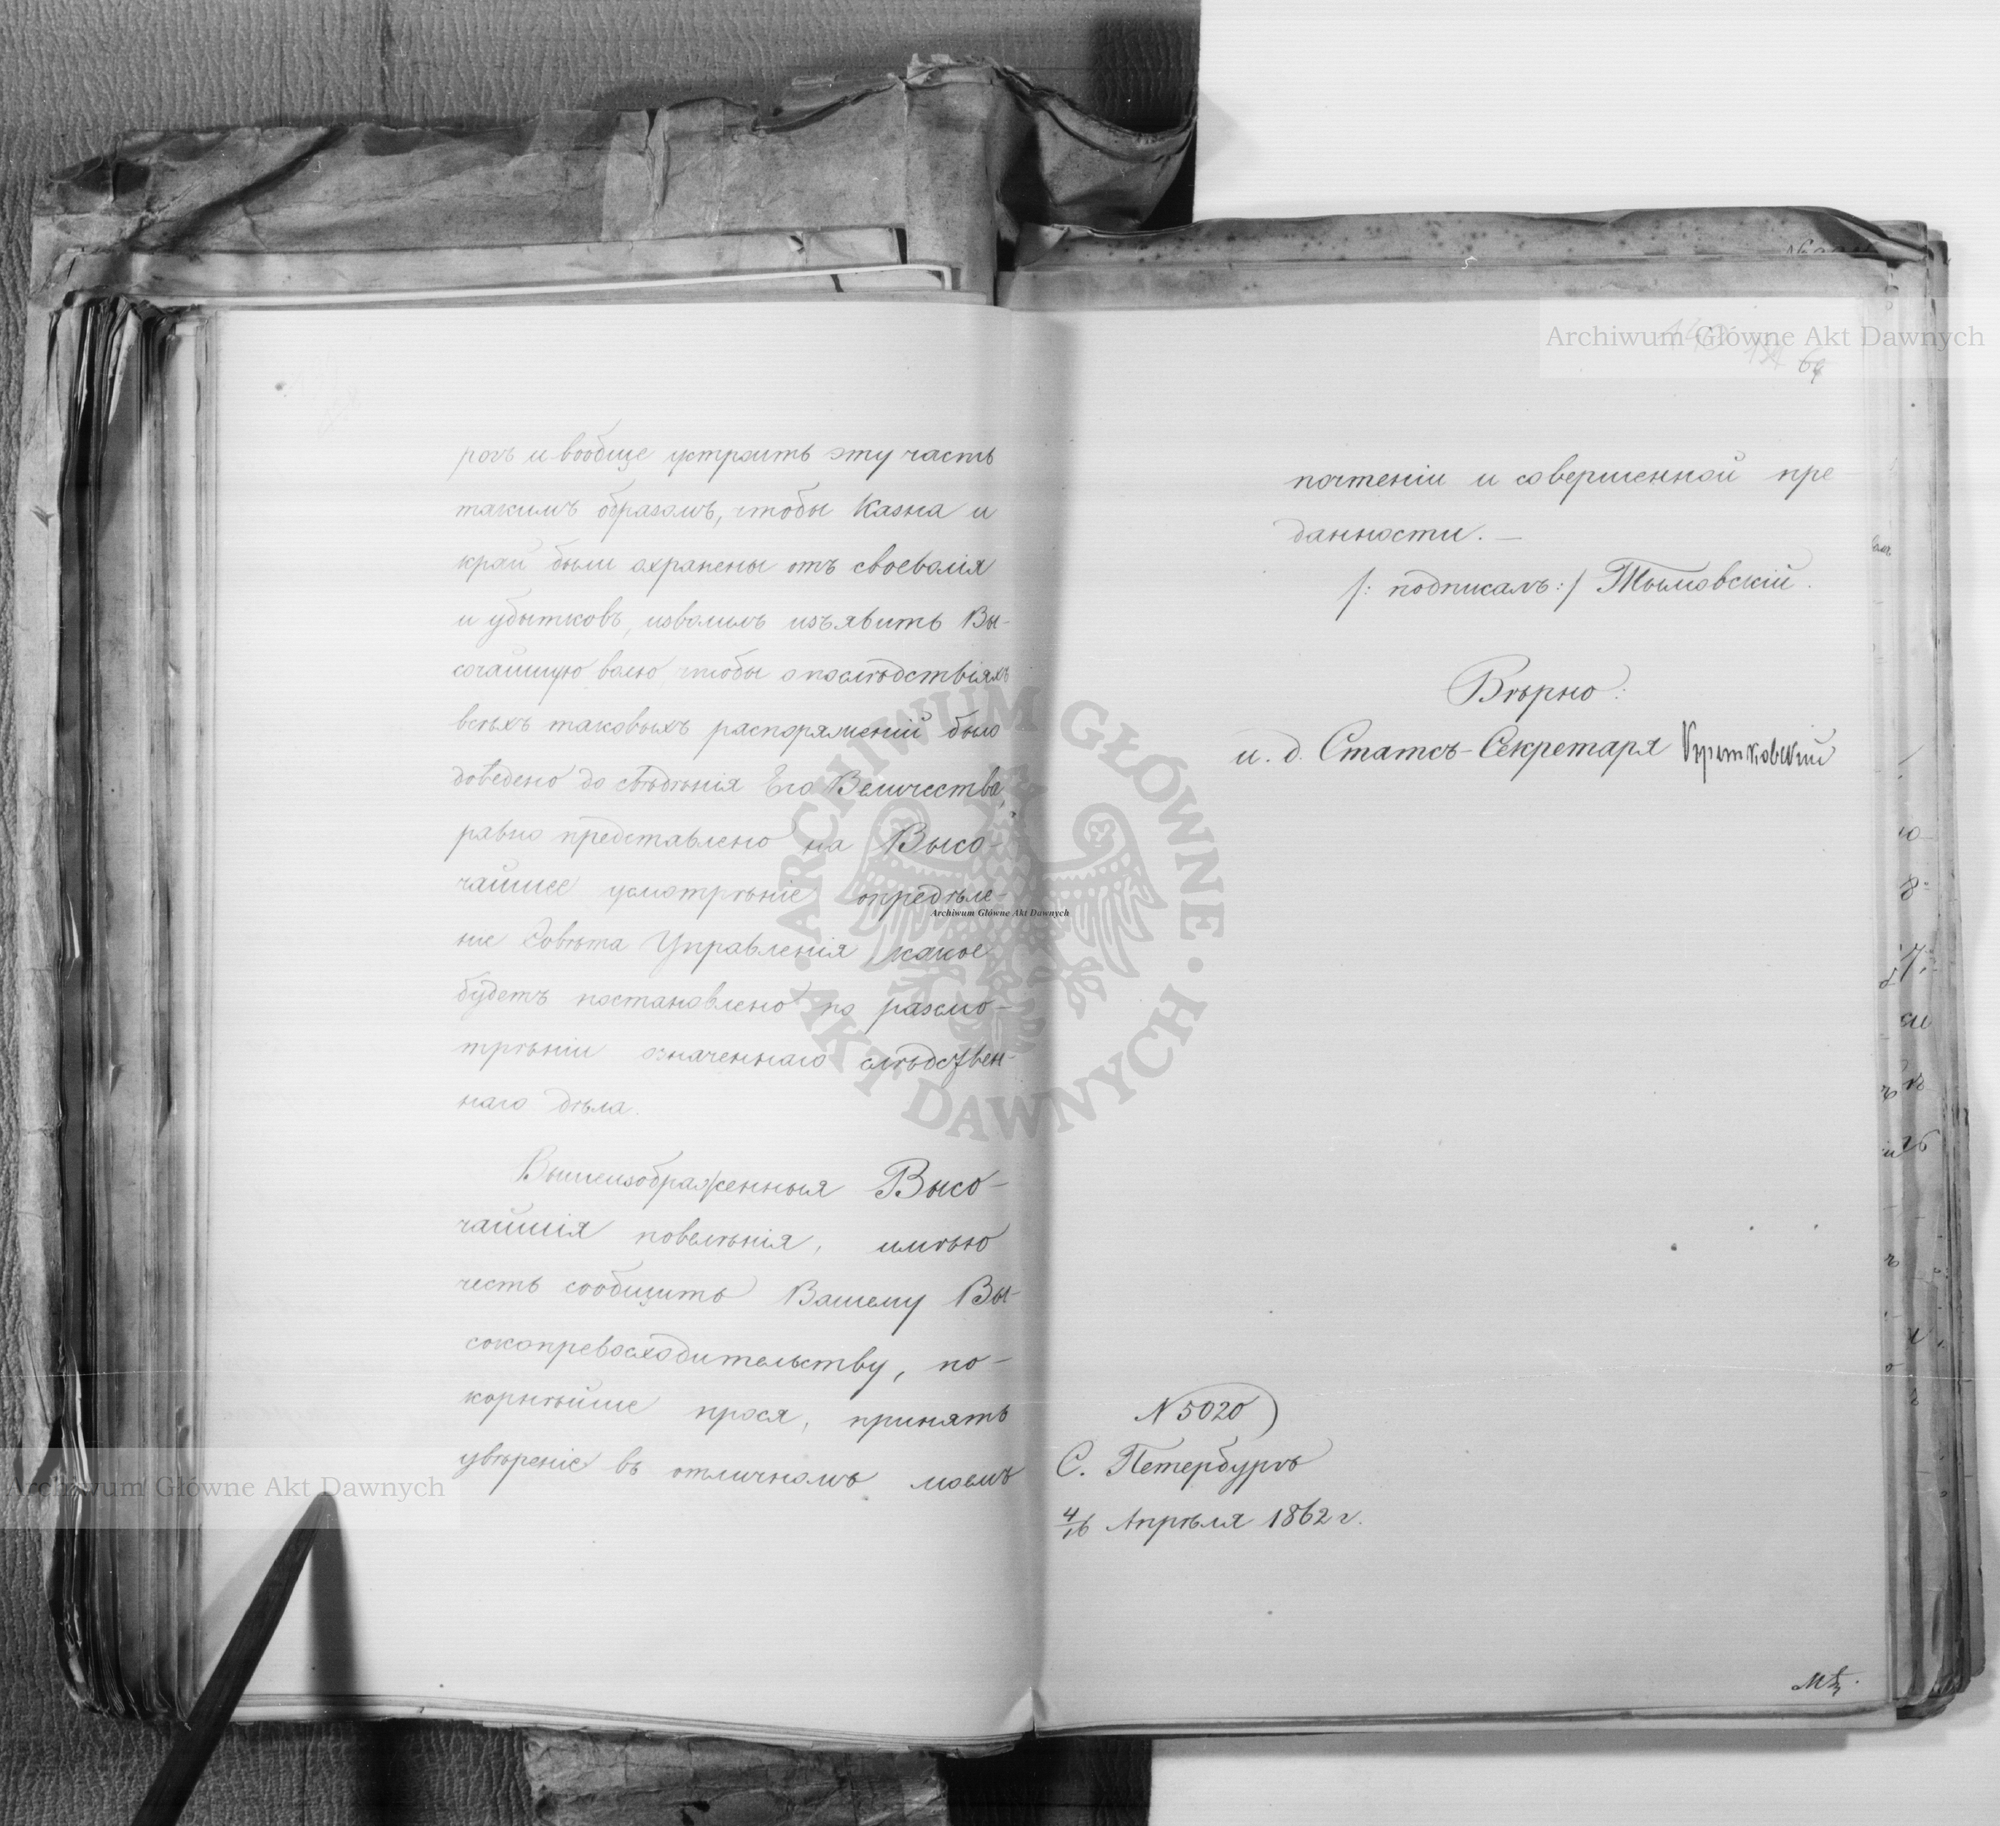 рогъ и вообще устроить эту часть
такимъ образомъ, чтобы Казна и
край были охранены отъ своеволія
и убытковъ, изволилъ изъявить Вы-
сочайшую волю чтобы о послѣдствіяхъ
всѣхъ таковыхъ распоряженій было
доведено до свѣдѣнія Его Величества,
равно представлено на Высо-
чайшее усмотрѣніе опредѣле-
ніе Совѣта Управленія какое
будетъ постановлено по разсмо-
трѣніи означеннаго слѣдствен-
наго дѣла.
Вышеизображенныя Высо-
чайшія повелѣнія, имѣю
честь сообщить Вашему Вы-
сокопревосходительству, по-
корнѣйше прося, принять
увѣреніе въ отличномъ моемъ
69
почтеніи и совершенной пре
данности. —
/: подписалъ:/ Тымовскій.
Вѣрно:
и. д. Статсъ-Секретаря
N 5020
С. Петербургъ
4/16 Апрѣля 1862 г.
Archiwum Główne Akt Dawnych
Archiwum Główne Akt Dawnych
Archiwum Główne Akt Dawnych
ARCHIWUM GŁÓWNE
AKT DAWNYCH